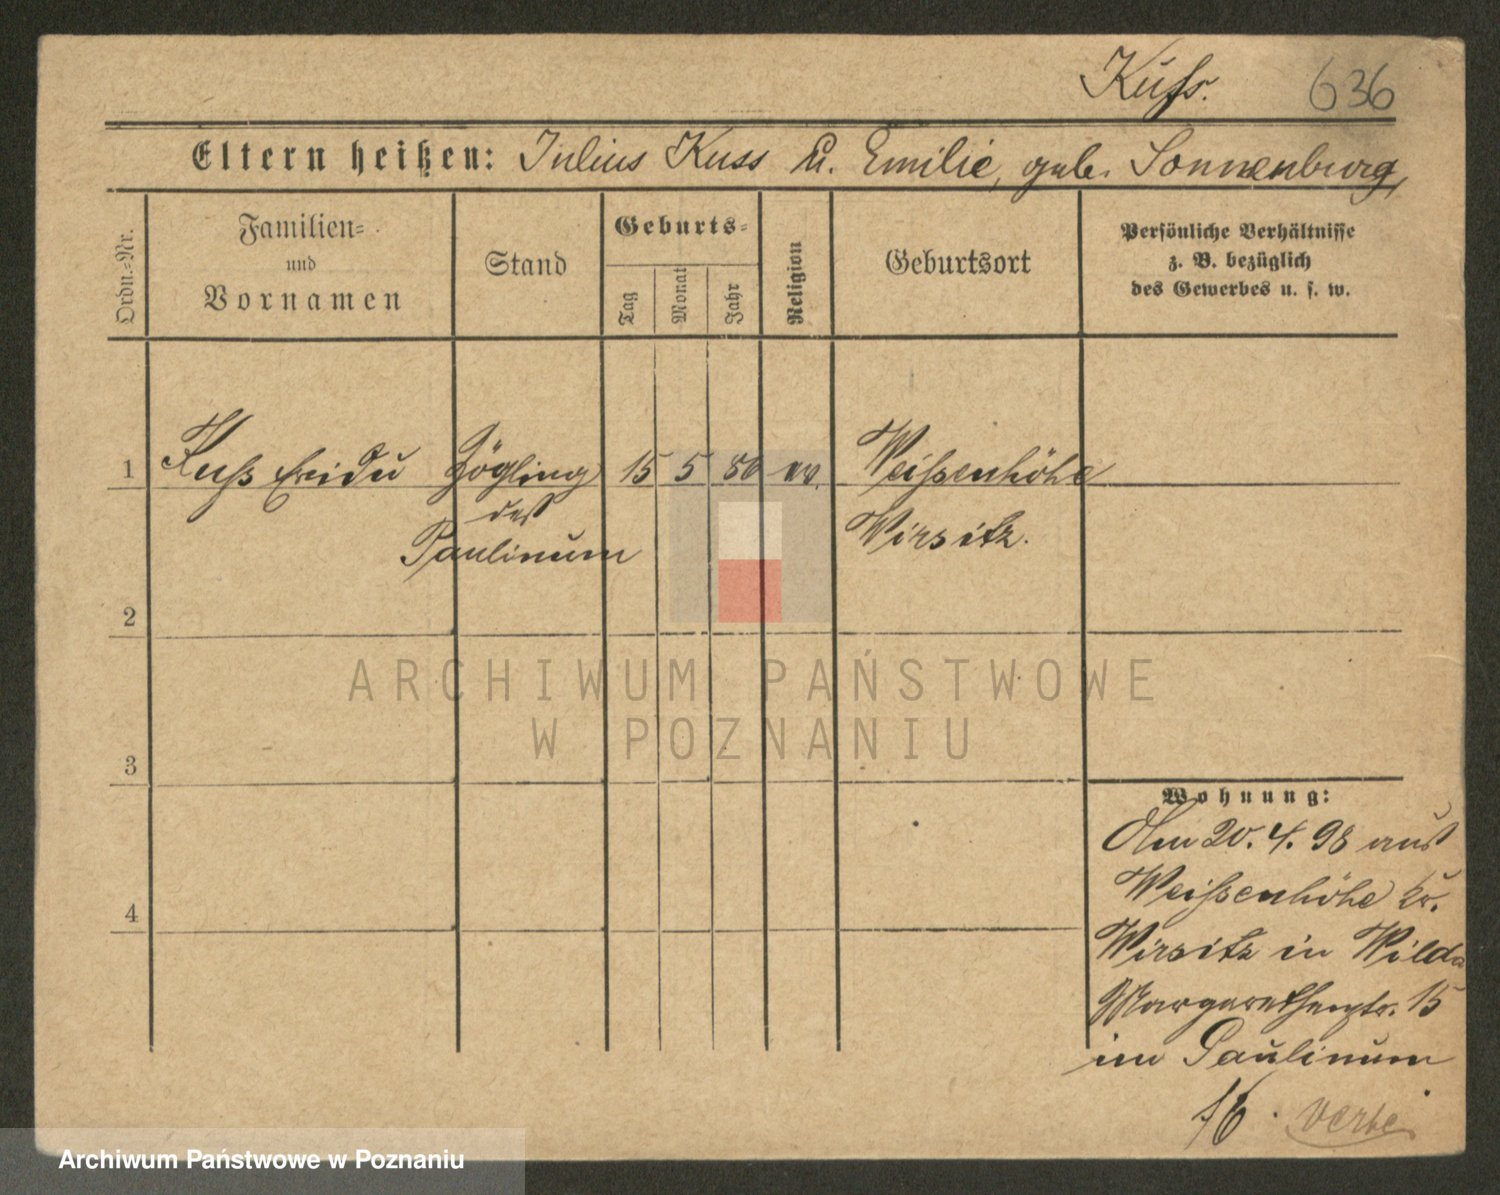 Kuſs. 636
Eltern heißen: Julius Kuss u. Emilie, geb. Sonnenburg,
Ordn.=Nr. Familien= und Vornamen Stand Geburts= Tag Monat Jahr Religion Geburtsort Persönliche Verhältnisse z. B. bezüglich des Gewerbes u. s. w.
1 Kuß Zögling 15 5 80 ev. Weißenhöhe
des Wirsitz.
Paulinum
2
ARCHIWUM PAŃSTWOWE
W POZNANIU
3
Wohnung:
Am 20. 4. 98 aus
Weißenhöhe Kr.
4
Wirsitz in Wilda
Margarethenstr. 15
im Paulinum
Archiwum Państwowe w Poznaniu